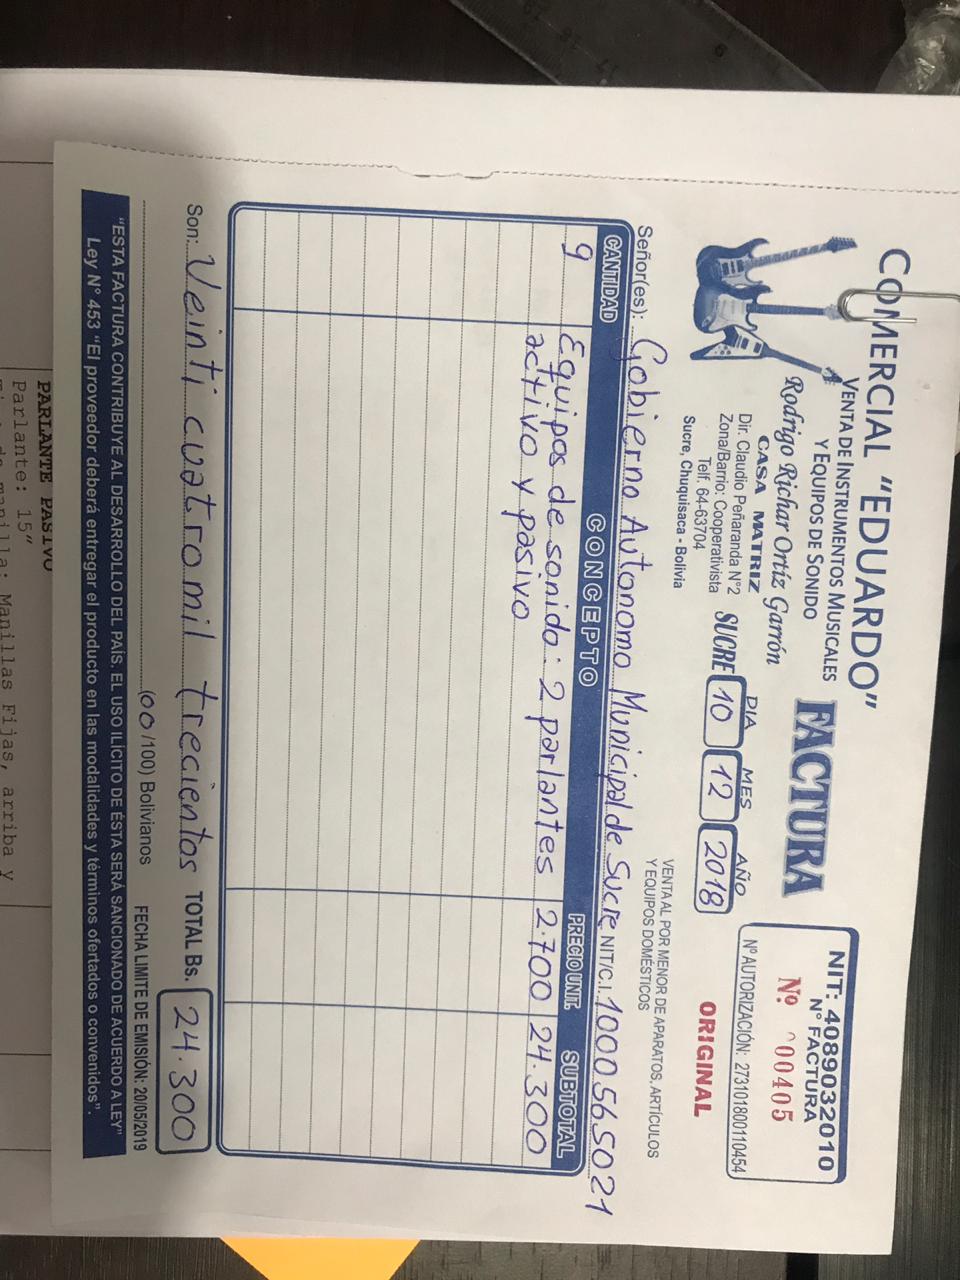 COMERCIAL "EDUARDO"
VENTA DE INSTRUMENTOS MUSICALES
Y EQUIPOS DE SONIDO
Rodrigo Richar Ortíz Garrón
CASA MATRIZ
Dir. Claudio Peñaranda N°2
Zona/Barrio: Cooperativista
Telf. 64-63704
Sucre, Chuquisaca - Bolivia
FACTURA
DIA MES AÑO
SUCRE 10 12 2018
NIT: 4089032010
N° FACTURA
Nº 00405
N° AUTORIZACIÓN: 273101800110454
ORIGINAL
VENTA AL POR MENOR DE APARATOS, ARTÍCULOS
Y EQUIPOS DOMÉSTICOS
Señor(es): Gobierno Autonomo Municipal de Sucre NIT/C.I. 1000565021
CANTIDAD CONCEPTO PRECIO UNIT. SUBTOTAL
9 Equipos de sonido: 2 parlantes 2.700 24.300
activo y pasivo
Son: Veinti cuatro mil trecientos TOTAL Bs. 24.300
(00/100) Bolivianos FECHA LIMITE DE EMISIÓN: 20/05/2019
"ESTA FACTURA CONTRIBUYE AL DESARROLLO DEL PAÍS. EL USO ILÍCITO DE ÉSTA SERÁ SANCIONADO DE ACUERDO A LEY"
Ley N° 453 "El proveedor deberá entregar el producto en las modalidades y términos ofertados o convenidos".
PARLANTE PASIVO
Parlante: 15"
manilla: Manillas Fijas, arriba y